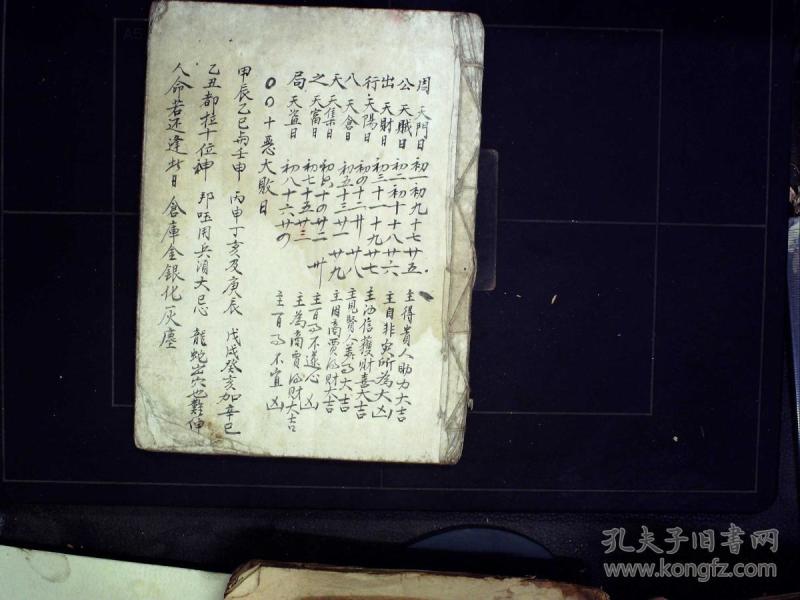 周 天門日 初一初九十七廿五 主得貴人助力大吉
公 天賊日 初二初十十八廿六 主自非災所為大凶
出 天財日 初三十一十九廿七 主治信獲財喜大吉
行 天陽日 初四十二廿 廿八 主見賢人萬事大吉
八 天倉日 初五十三廿一 廿九 主因商賈得財大吉
天 天集日 初六十四廿二 卅 主百事不遂心 凶
之 天富日 初七十五廿三 主為商賈得財大吉
局 天盜日 初八十六廿四 主百事不宜 凶
〇〇十惡大敗日
甲辰乙巳與壬申 丙申丁亥及庚辰 戊戌癸亥加辛巳
乙丑都在十位神 邦 用兵須大忌 龍蛇出穴也難伸
人命若还逢此日 倉庫金銀化灰塵
孔夫子旧书网
www.kongfz.com